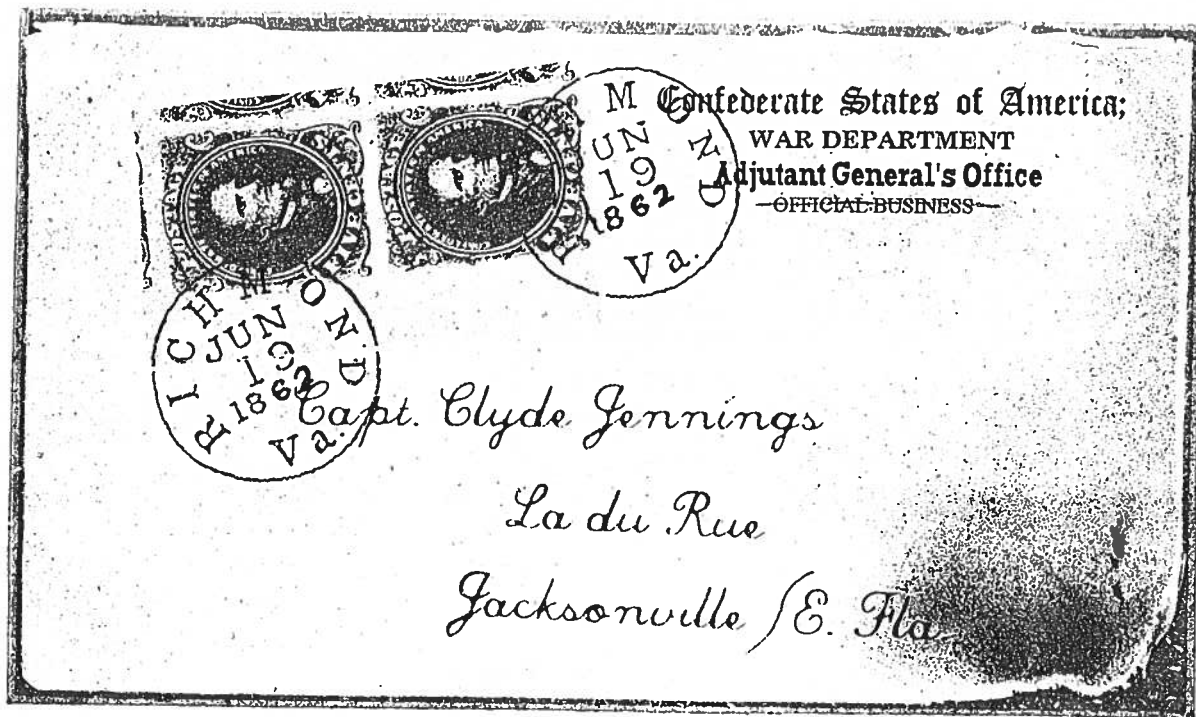 Confederate States of America;
WAR DEPARTMENT
Adjutant General's Office
OFFICIAL BUSINESS
M OND
JUN
19
1862
R
Va.
RICHMOND
JUN
19
1862
Va.
Capt. Clyde Jennings
La du Rue
Jacksonville / E. Fla